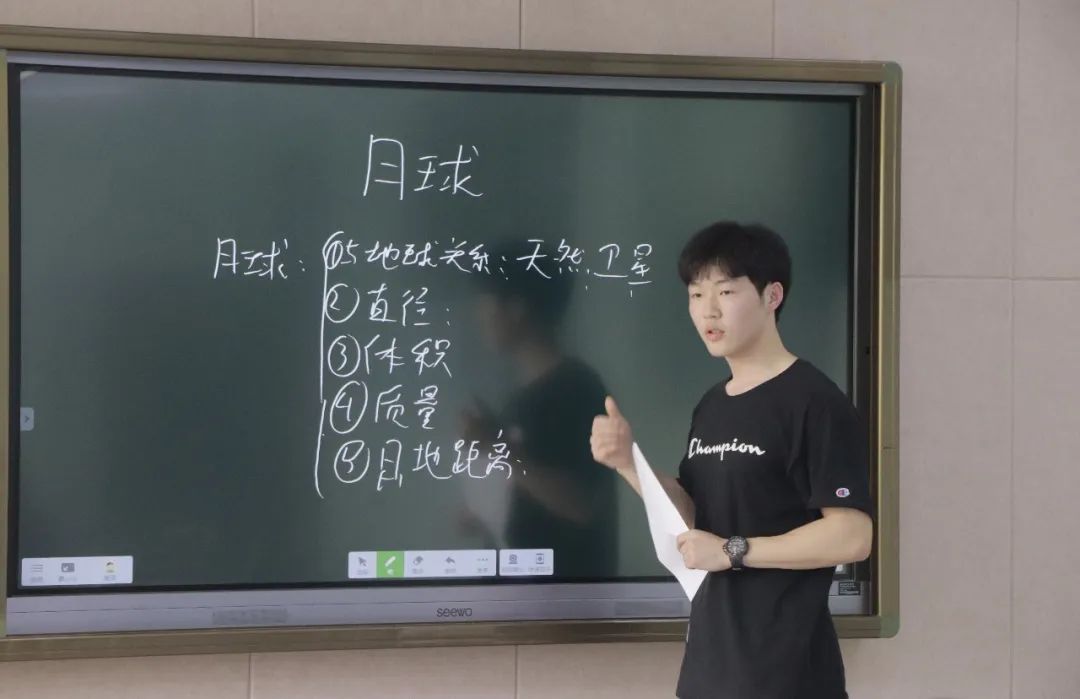 月球
月球: ①与地球关系: 天然卫星
②直径:
③体积
④质量
⑤月地距离:
Champion
seewo